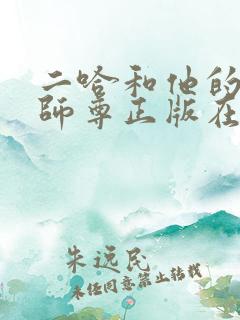 二哈和他的
師尊正版在
朱远民
未经同意禁止转载